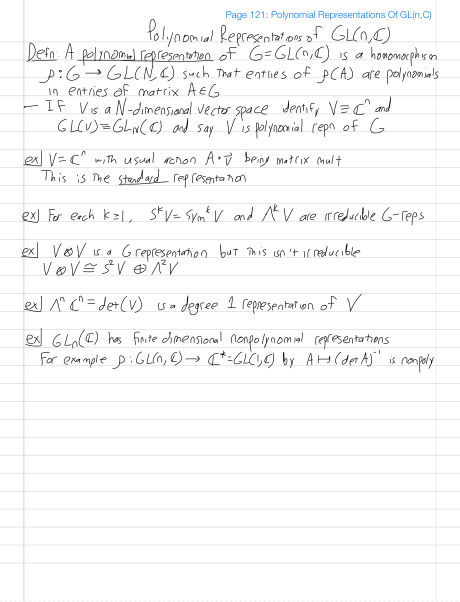 Page 121: Polynomial Representations Of GL(n,C)
Polynomial Representations of GL(n,ℂ)
Defn: A polynomial representation of G=GL(n,ℂ) is a homomorphism
ρ: G → GL(N,ℂ) such that entries of ρ(A) are polynomials
in entries of matrix A∈G
- IF V is a N-dimensional vector space identify V≡ℂⁿ and
GL(V)≡GL_N(ℂ) and say V is polynomial repn of G
ex] V=ℂⁿ with usual action A·v⃗ being matrix mult
This is the standard representation
ex] For each k≥1, SᵏV=SymᵏV and ΛᵏV are irreducible G-reps
ex] V⊗V is a G representation but this isn't irreducible
V⊗V ≅ S²V ⊕ Λ²V
ex] Λⁿℂⁿ=det(V) is a degree 1 representation of V
ex] GLₙ(ℂ) has finite dimensional nonpolynomial representations
For example ρ: GL(n,ℂ) → ℂ*=GL(1,ℂ) by A↦(det A)⁻¹ is nonpoly